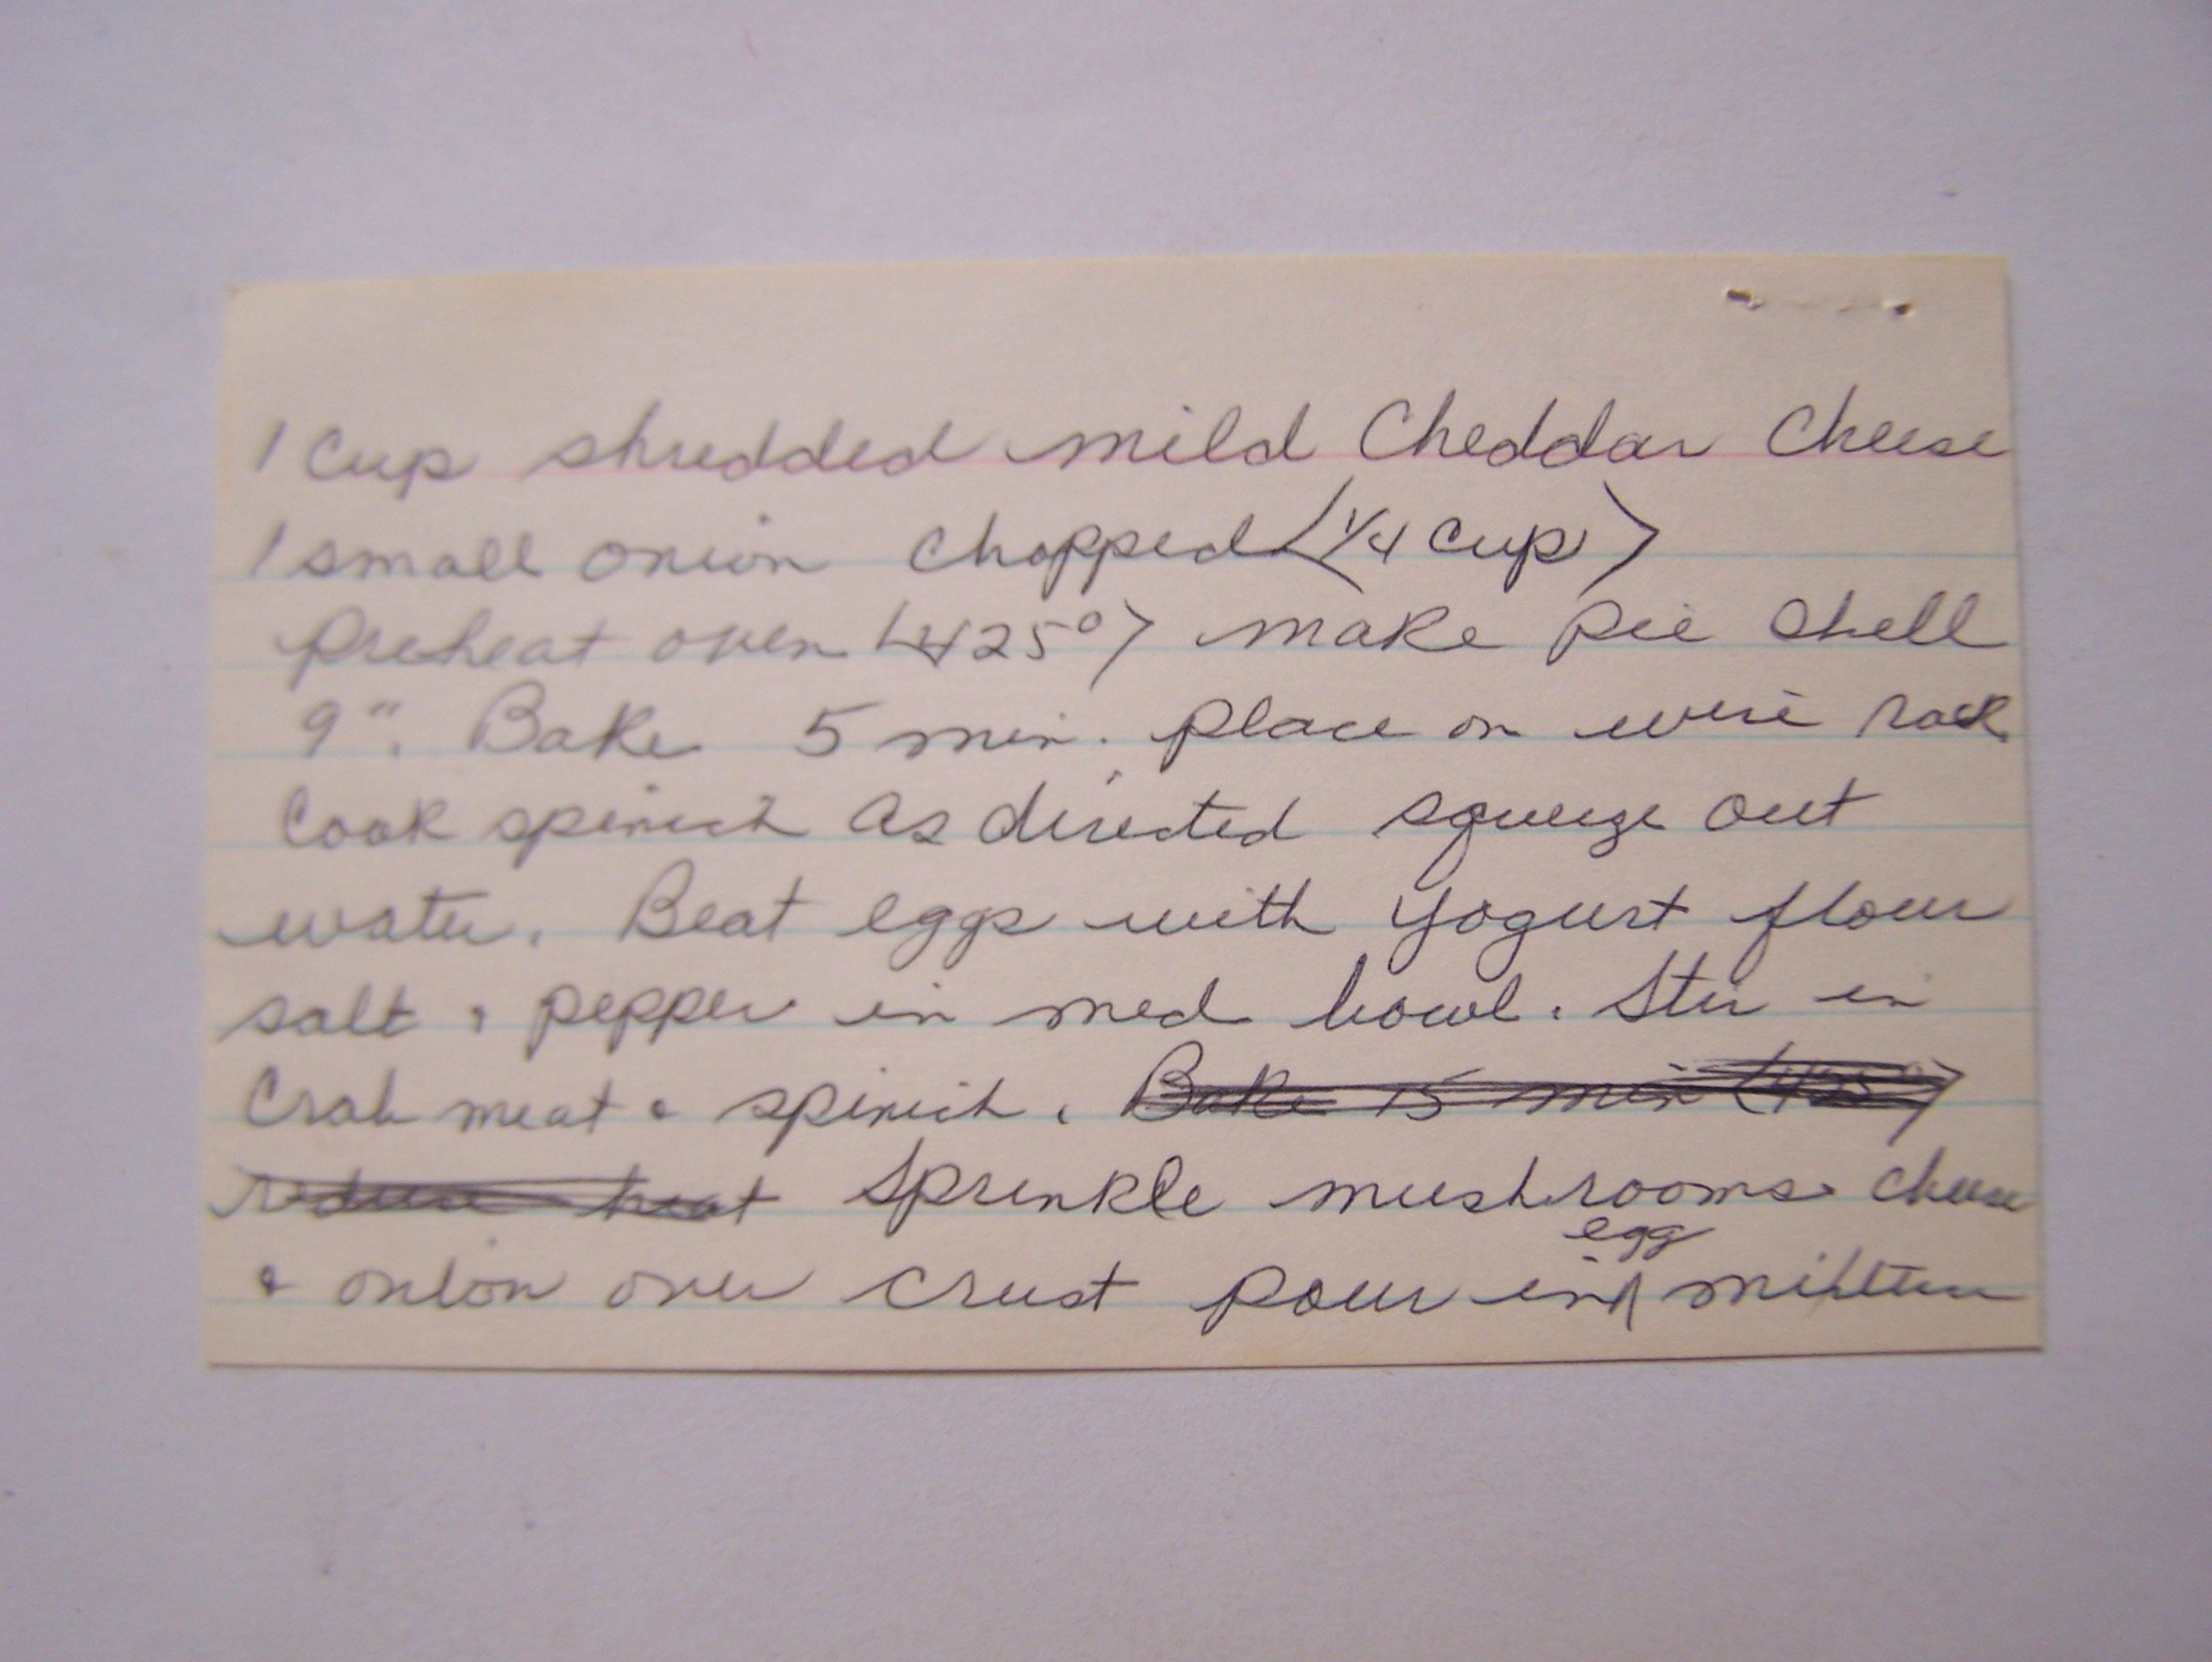 1 Cup shredded mild Cheddar Cheese
1 small onion chopped (1/4 cup)
Preheat oven (425°) make pie shell
9". Bake 5 min. place on wire rack
Cook spinich as directed squeeze out
water. Beat eggs with yogurt flour
salt & pepper in med bowl. Stir in
Crab meat & spinich. Bake 15 min (425°)
reduce heat Sprinkle mushrooms cheese
& onion over crust pour in egg